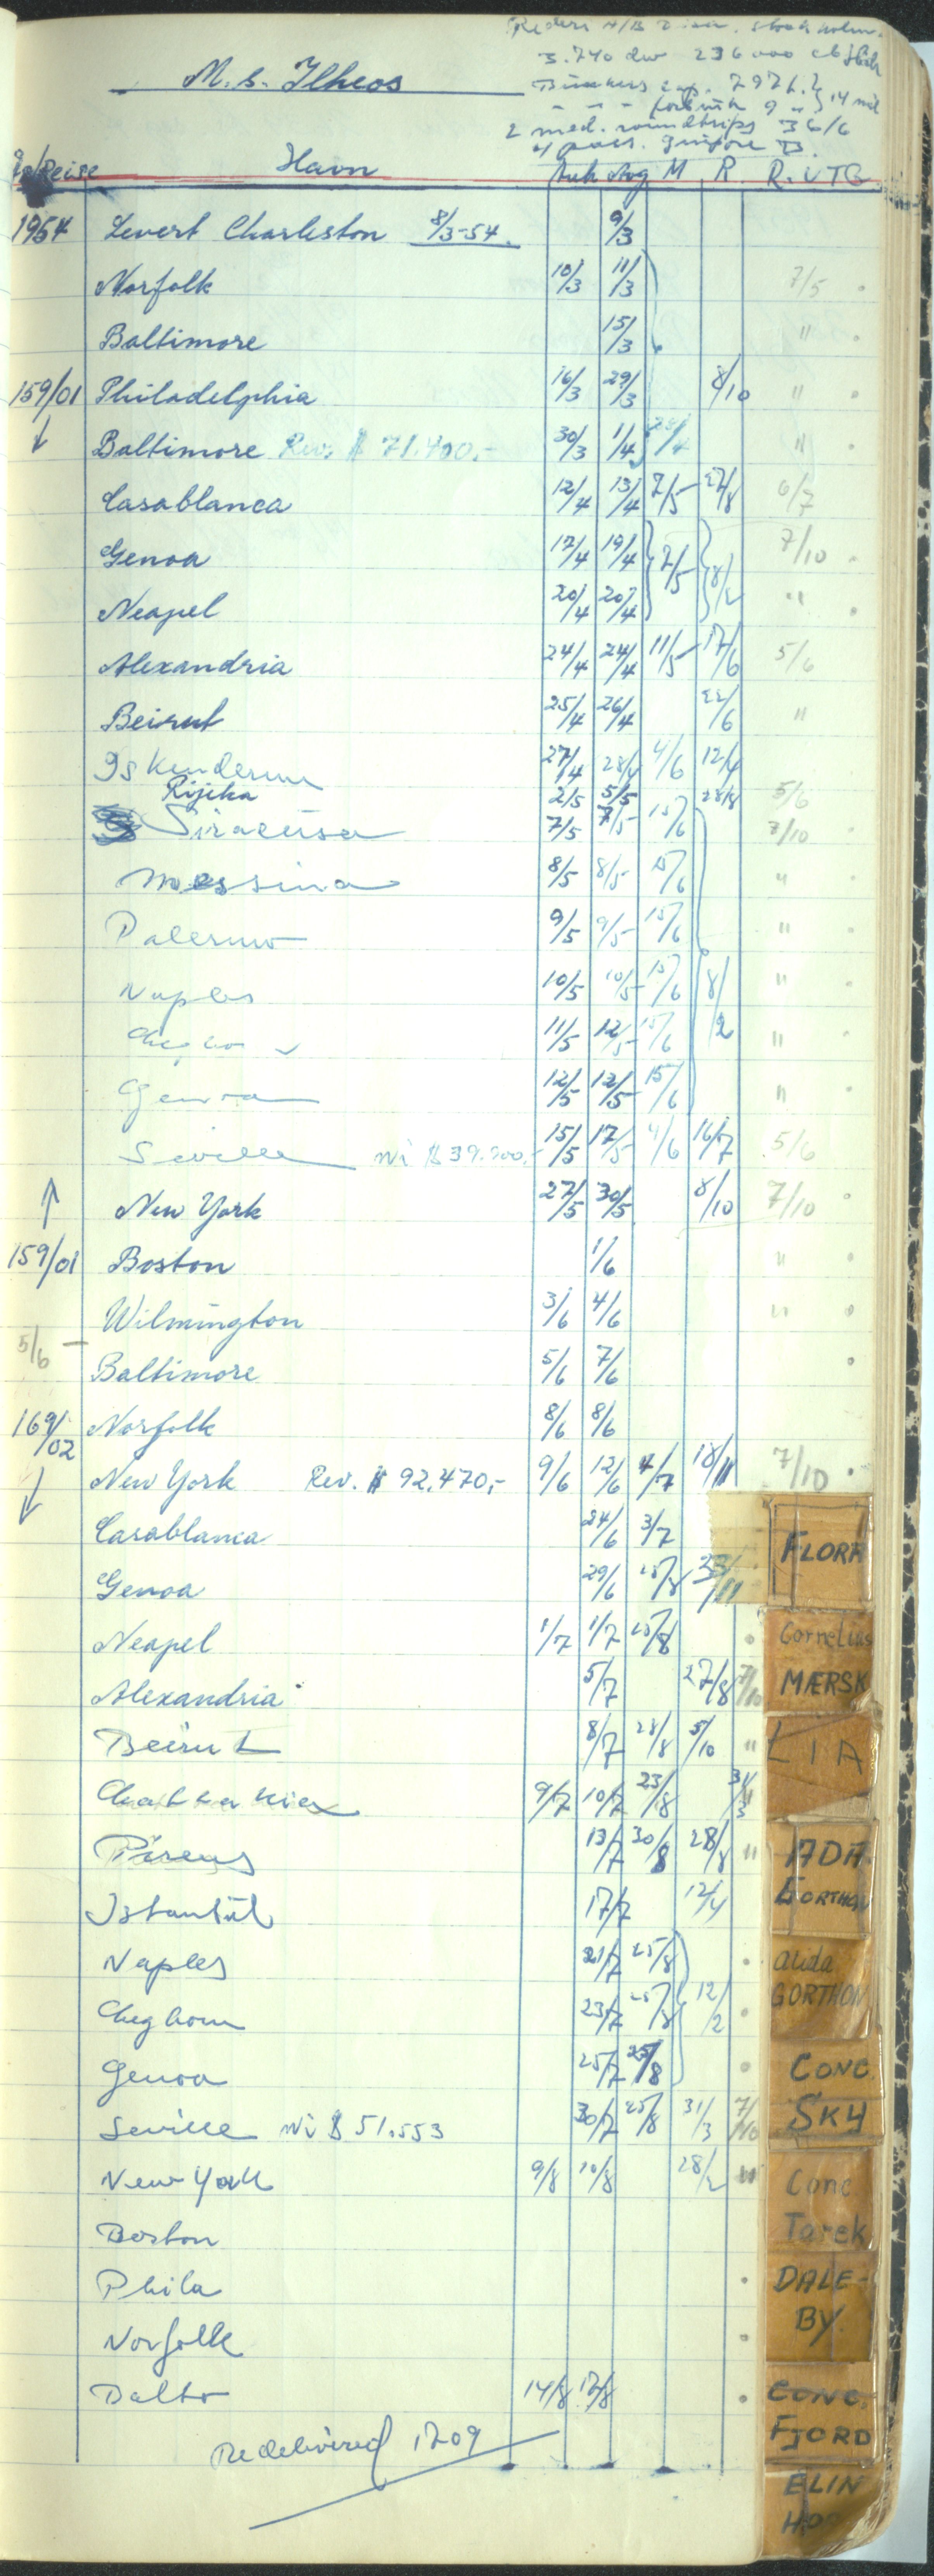 Rederi A/B Stockholm.
M.S. Ilheos 3.740 dw 236 000 cbf
Bunkers cap. 14 mil
2 med. roundtrips 36/6
4 pass.
Reise Havn Ank Avg M R. R. UTG
1954 Levert Charleston 8/3-54. 9/3
Norfolk 10/3 11/3 7/5
Baltimore 15/3 "
159/01 Philadelphia 16/3 29/3 8/10 "
↓ Baltimore Rev. $ 71.400,- 30/3 1/4 "
Casablanca 12/4 13/4 7/5 27/8 6/7
Genoa 17/4 19/4 7/5 8/2 7/10
Neapel 20/4 20/4 "
Alexandria 24/4 24/4 11/5 17/6 5/6
Beirut 25/4 26/4 22/6 "
Iskenderun 27/4 28/4 4/6 12/4
Rijeka 2/5 5/5 28/8 5/6
Siracusa 7/5 7/5 15/6 7/10
Messina 8/5 8/5 15/6 "
Palermo 9/5 9/5 15/6 "
Naples 10/5 10/5 15/6 8/2 "
11/5 12/5 15/6 "
Genoa 12/5 12/5 15/6 "
Seville Ni $ 39.900,- 15/5 17/5 4/6 16/7 5/6
↑ New York 27/5 30/5 8/10 7/10
159/01 Boston 1/6 "
Wilmington 3/6 4/6 "
5/6 -
Baltimore 5/6 7/6
169/02 Norfolk 8/6 8/6
↓ New York Rev. $ 92.470,- 9/6 12/6 4/7 18/11 7/10
Casablanca 24/6 3/7
Genoa 29/6 25/8 23/11
Neapel 1/7 1/7 25/8
Alexandria 5/7 27/8 7/10
Beirut 8/7 28/8 5/10 "
9/7 10/7 23/8 31/3
Pireus 13/7 30/8 28/8 "
Istanbul 17/7 12/4
Naples 21/7 25/8
Leghorn 23/7 25/8 12/2
Genoa 25/7 25/8
Seville Ni $ 51.553 30/7 25/8 31/3 7/10
New York 9/8 10/8 28/2 "
Boston
Phila
Norfolk
Balto 14/8 17/8
Redelivered 1709
FLORA
Cornelius
MÆRSK
LIA
ADA
GORTHON
Alida
GORTHON
CONC.
SKY
Conc.
Tarek
DALE-
BY.
CONC.
FJORD
ELIN